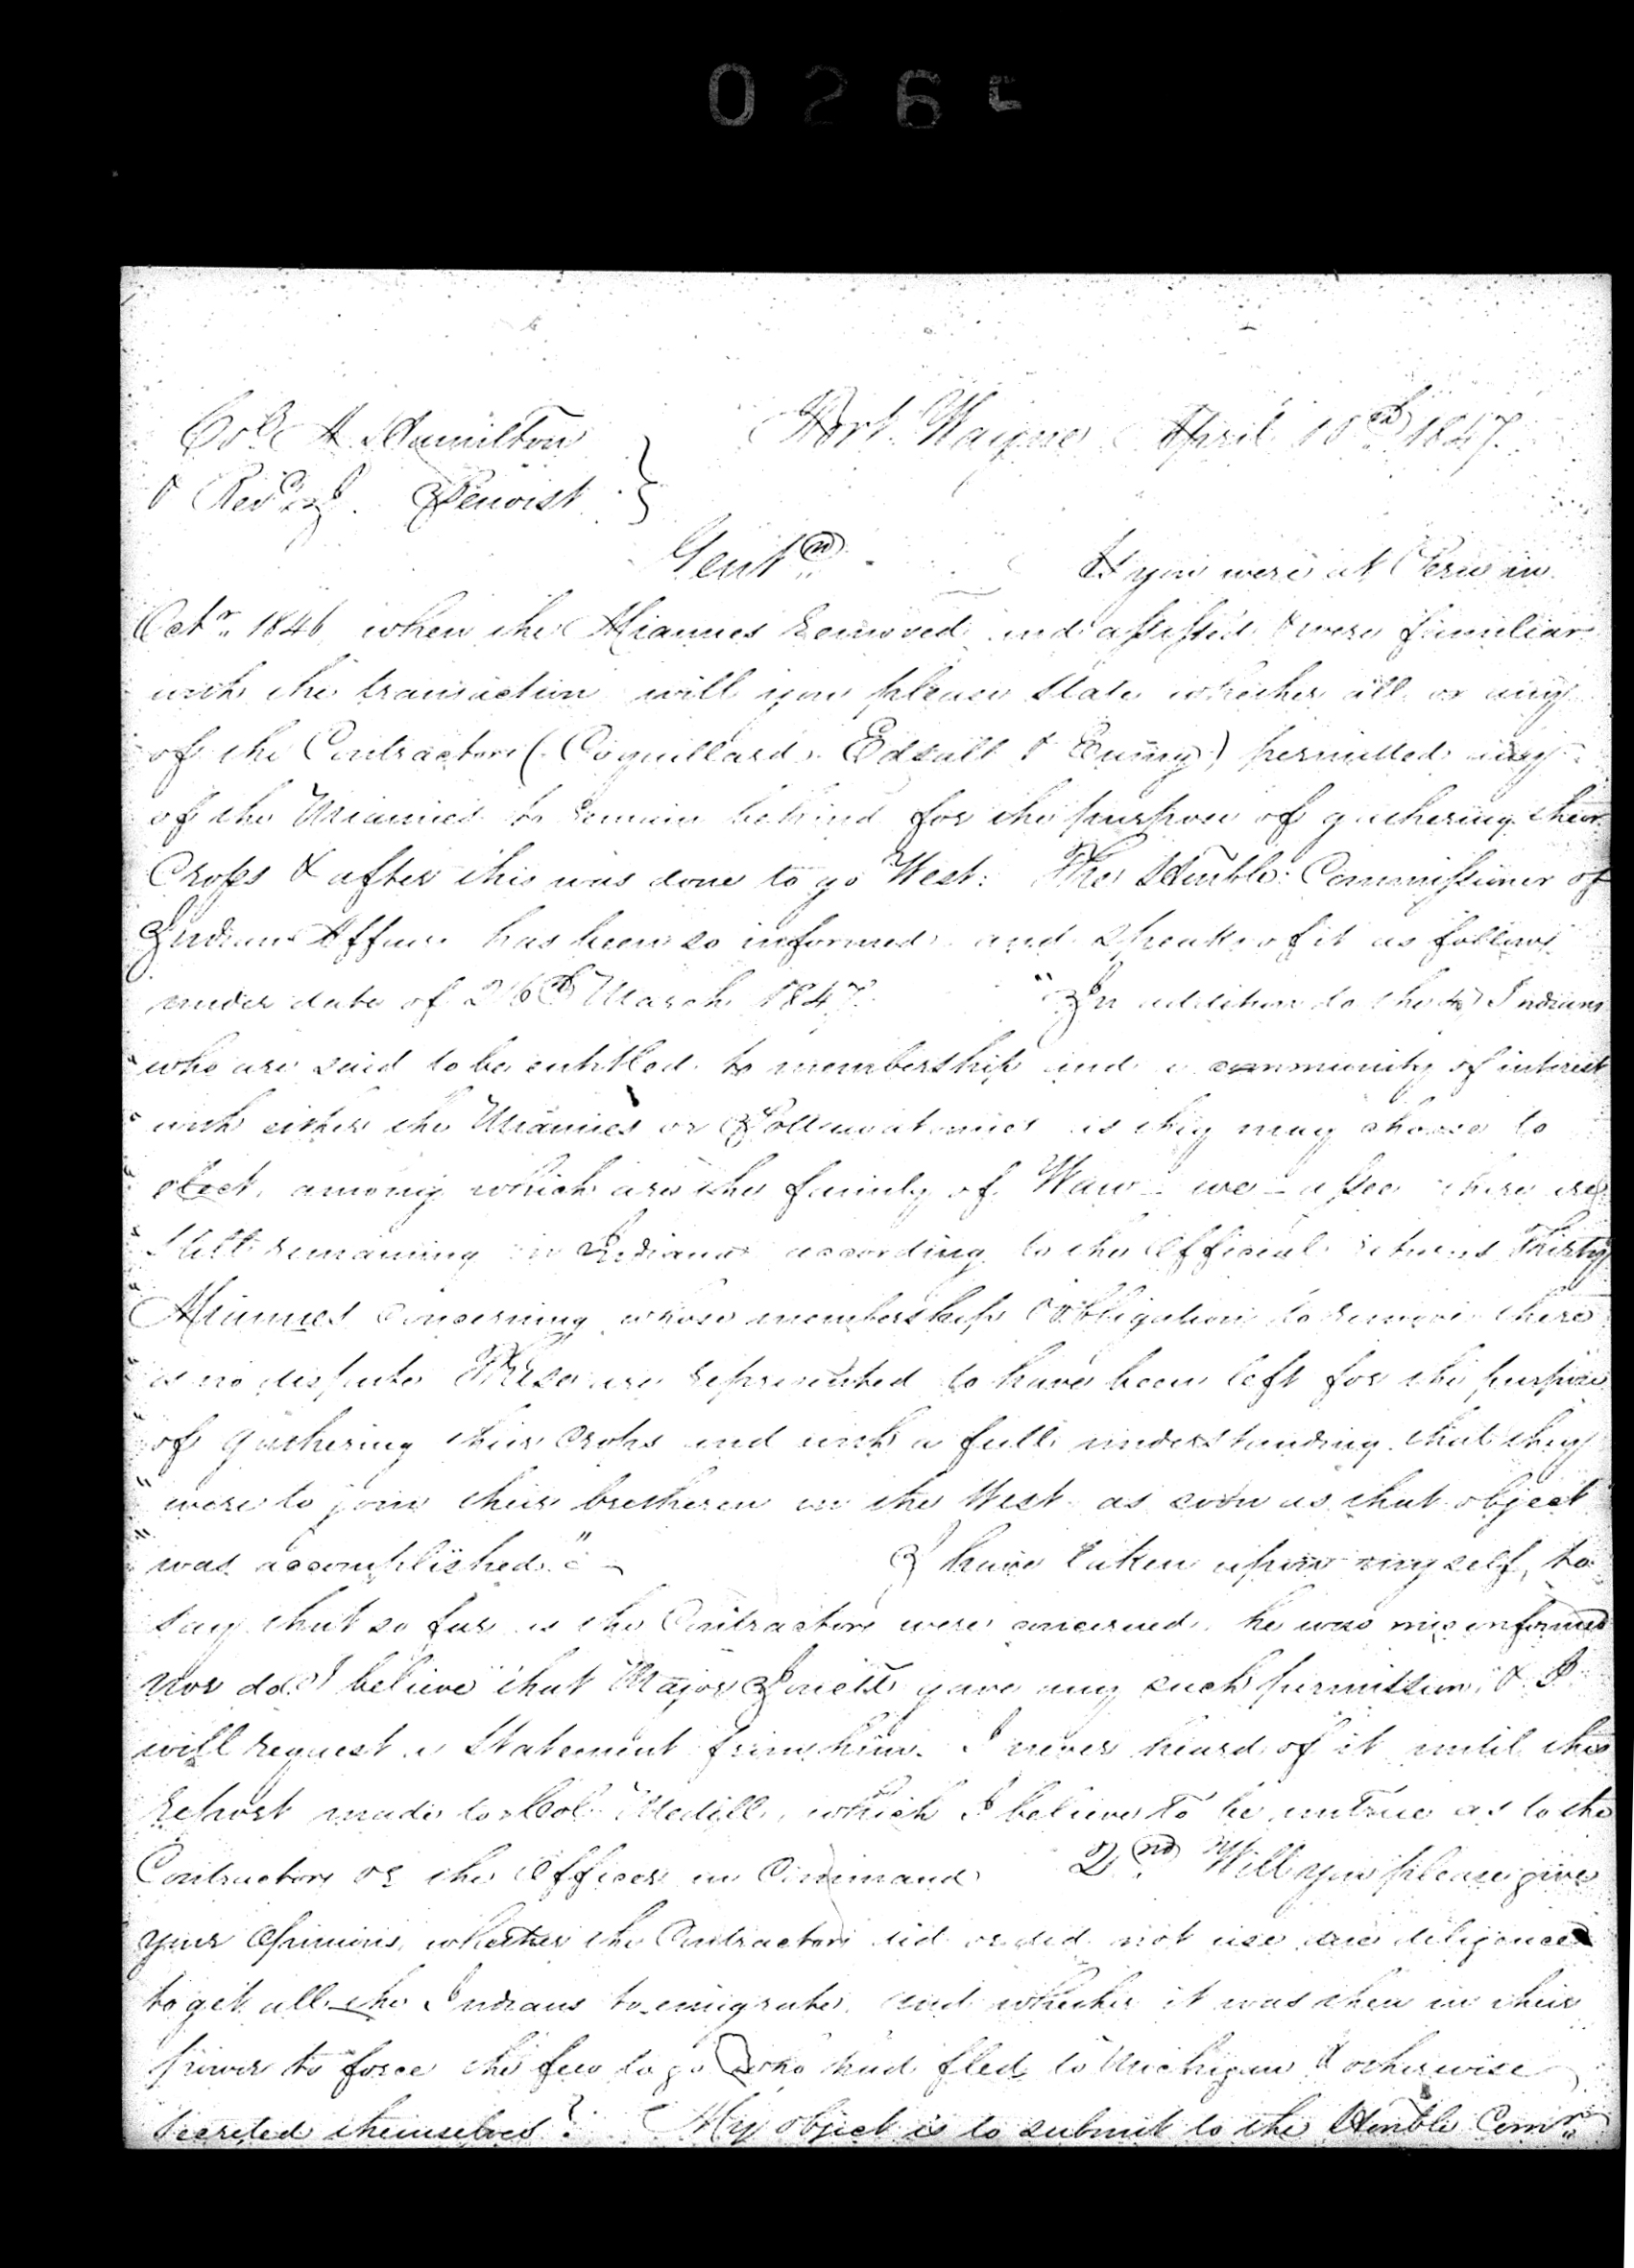 0265
Col. A. Hamilton
& Revd J. Benoist }
Fort Wayne April 10th 1847.
Gentn.
As you were at Peru in
Octr. 1846 when the Miamies removed and assisted & were familiar
with the transaction will you please state whether all or any
of the Contractors (Coquillard, Edsall & Ewing) permitted any
of the Miamies to remain behind for the purpose of gathering their
Crops & after this was done to go West. The Honble. Commissioner of
Indian Affairs has been so informed and speaks of it as follows
under date of 26th March 1847. "In addition to the Indians
"who are said to be entitled to membership and a community of interest
"with either the Miamies or Pottawatomies as they may choose to
"elect, among which are the family of Waw-we-assee there are
"still remaining in Indiana according to the Official returns Thirty
"Miamies concerning whose membership & obligation to remove there
"is no dispute These are represented to have been left for the purpose
"of gathering their Crops and with a full understanding that they
"were to join their bretheren in the West as soon as that object
"was accomplished." - I have taken upon myself, to
say that so far as the Contractors were concerned, he was misinformed
nor do I believe that Major gave any such permission, & I
will request a Statement from him. I never heard of it until this
report made to Col. Medill, which I believe to be untrue as to the
Contractors or the Officer in Command 2nd. Will you please give
your Opinions, whether the Contractors did or did not use due diligence
to get all the Indians to emigrate, and whether it was then in their
power to force the few to go who had fled to Michigan & otherwise
secreted themselves? My object is to submit to the Honble Comr.